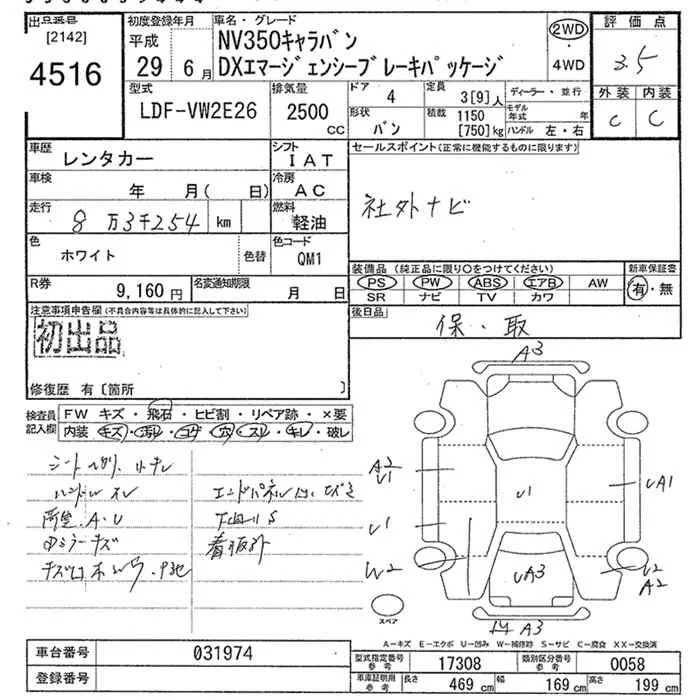 出品番号
[2142]
4516
初度登録年月
平成
29 6月
車名・グレード
NV350キャラバン
DXエマージェンシーブレーキパッケージ
2WD
・
4WD
評価点
3.5
外装 内装
C C
型式
LDF-VW2E26
排気量
2500
CC
ドア 4
定員 3[9]人
ディーラー・並行
形状 バン
積載 1150
[750]kg
モデル年式 年
ハンドル 左・右
車歴
レンタカー
シフト
IAT
車検
年 月( 日)
冷房
AC
走行
8万3千254 km
燃料
軽油
色
ホワイト
色替
色コード
QM1
R券
9,160円
名変通知期限
月 日
セールスポイント(正常に機能するものに限ります)
社外ナビ
装備品 (純正品に限り○をつけてください)
PS PW ABS エアB AW
SR ナビ TV カワ
新車保証書
有・無
後日品
保・取
注意事項申告欄(不具合内容等は具体的に記入して下さい)
初出品
修復歴 有〔箇所 〕
検査員記入欄
FW キズ・飛石・ヒビ割・リペア跡・×要
内装 キズ・汚れ・コゲ・穴・スレ・キレ・破レ
ハンドルスレ
A・U
ミラーキズ
下回りS
A3
A2
U1
U1
W2
U1
UA1
UA3
U2
A2
A3
スペア
A-キズ E-エクボ U-凹み W-補修跡 S-サビ C-腐食 XX-交換済
車台番号 031974
登録番号
型式指定番号参考 17308
類別区分番号参考 0058
車庫証明用参考
長さ 469 cm
幅 169 cm
高さ 199 cm